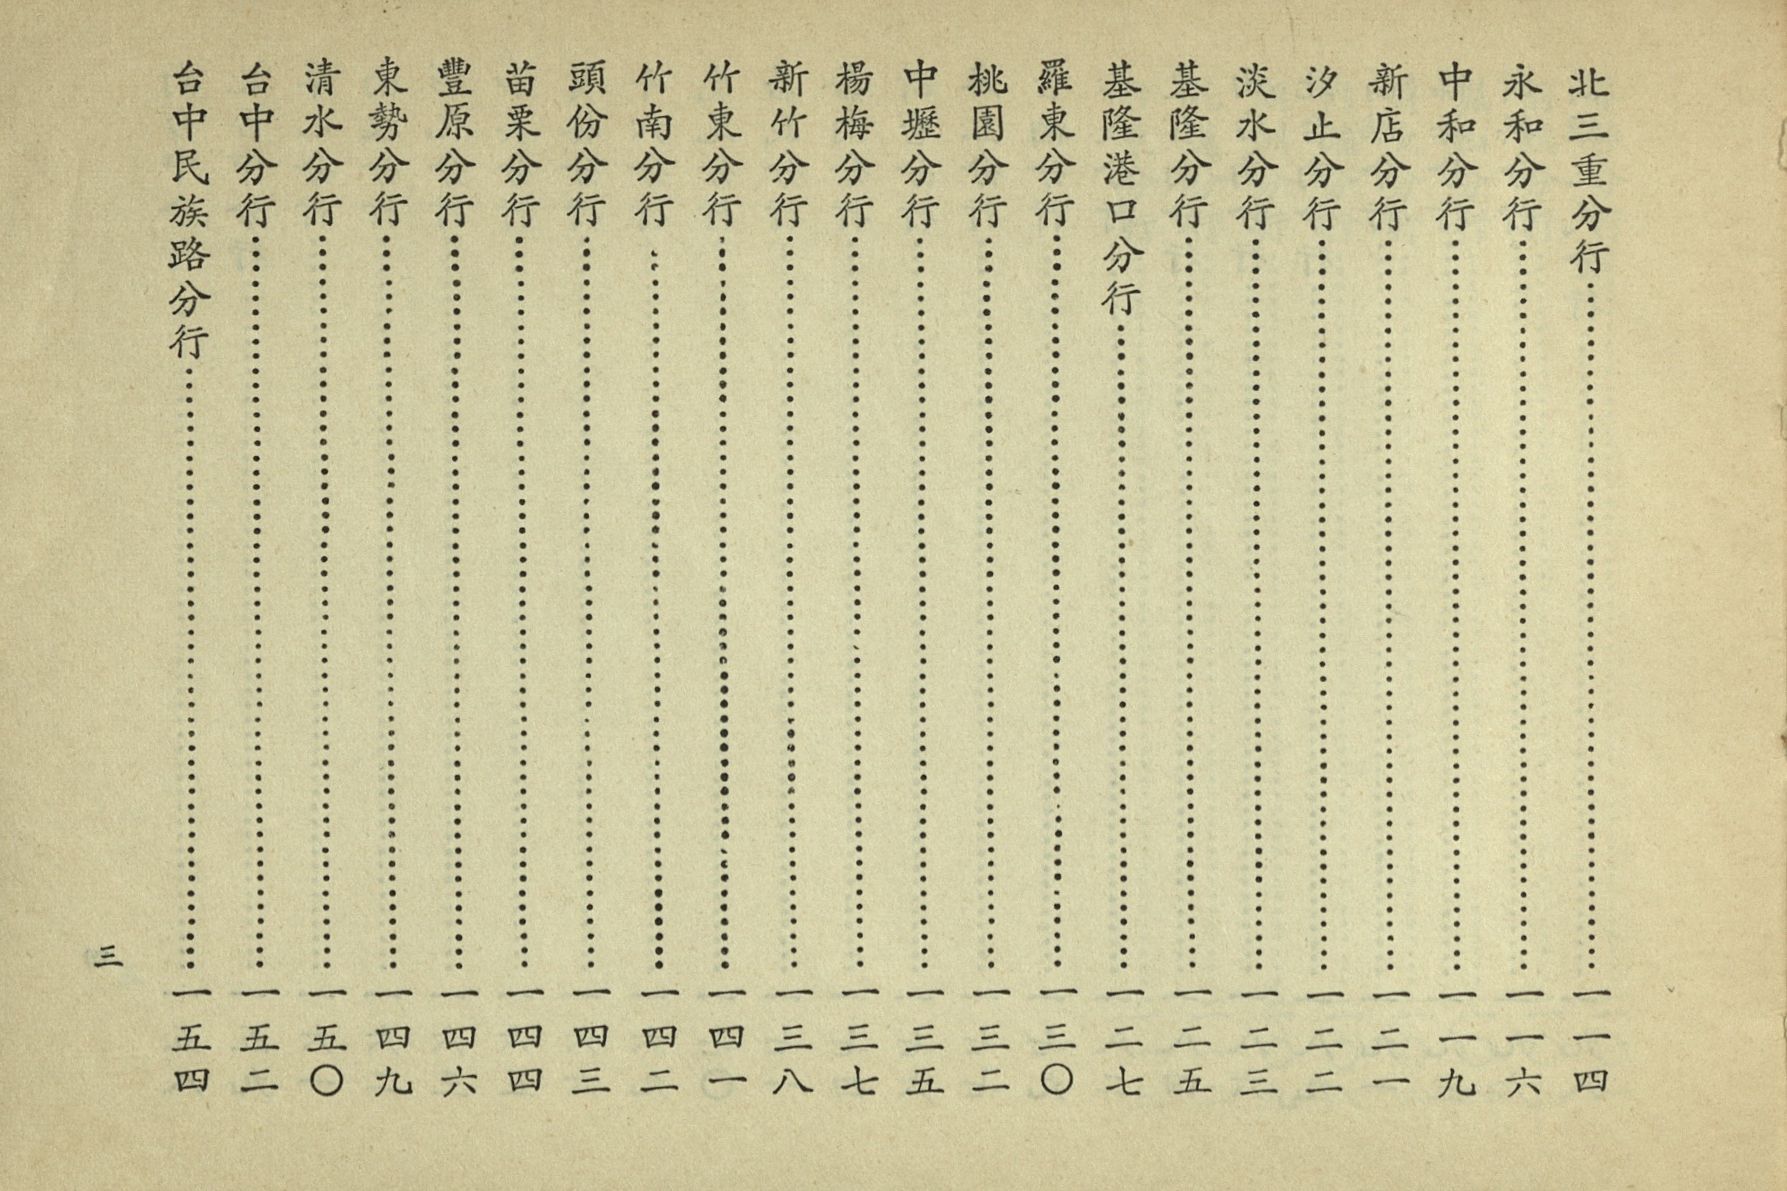 北三重分行……一一四
永和分行……一一六
中和分行……一一九
新店分行……一二一
汐止分行……一二二
淡水分行……一二三
基隆分行……一二五
基隆港口分行……一二七
羅東分行……一三〇
桃園分行……一三二
中壢分行……一三五
楊梅分行……一三七
新竹分行……一三八
竹東分行……一四一
竹南分行……一四二
頭份分行……一四三
苗栗分行……一四四
豐原分行……一四六
東勢分行……一四九
清水分行……一五〇
台中分行……一五二
台中民族路分行……一五四
三